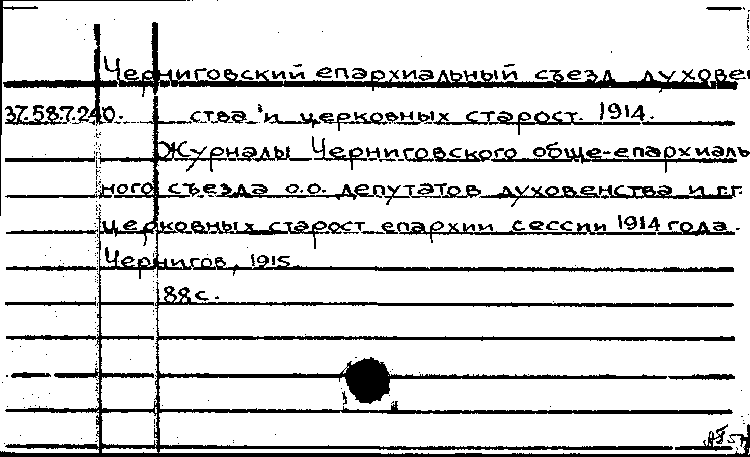 Черниговский епархиальный съезд духовен
37.587.240. ства и церковных старост. 1914.
Журналы Черниговского обще-епархиаль
ного съезда о.о. депутатов духовенства и г.г.
церковных старост епархии сессии 1914 года.
Чернигов, 1915
88 с.